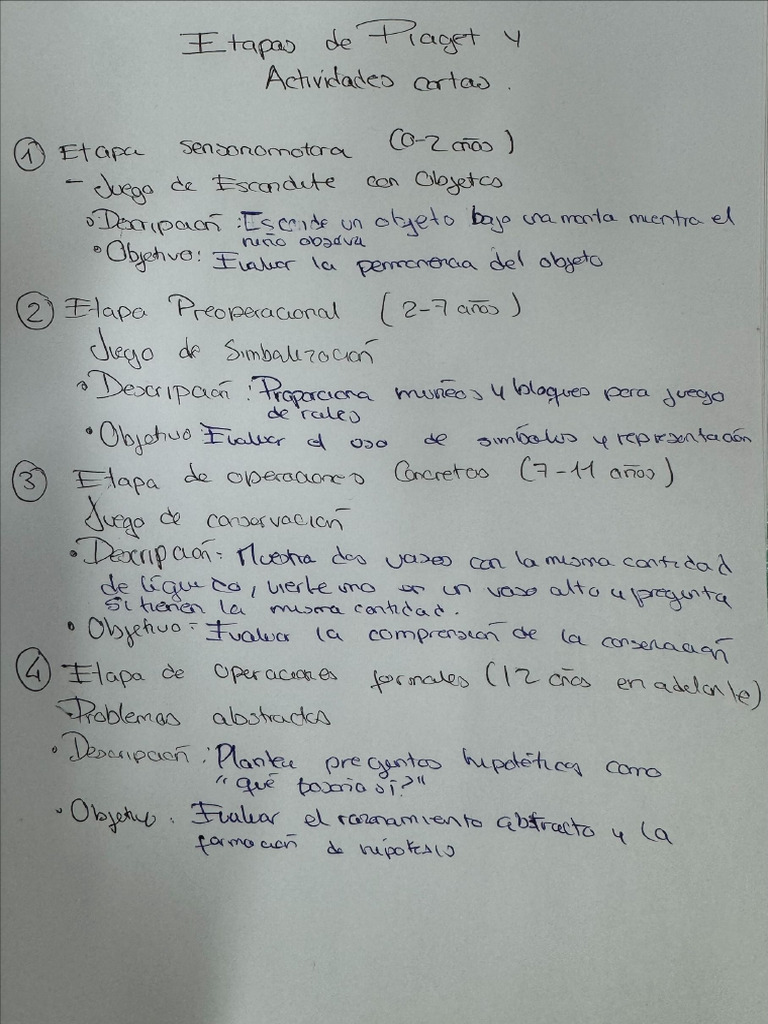 Etapas de Piaget y
Actividades cortas.
① Etapa sensoriomotora (0-2 años)
- Juego de Escondite con Objetos
• Descripción: Esconde un objeto bajo una manta mientra el
niño observa
• Objetivo: Evaluar la permanencia del objeto
② Etapa Preoperacional (2-7 años)
Juego de Simbolización
• Descripción: Proporciona muñecos y bloques para juego
de roles
• Objetivo Evaluar el uso de símbolos y representación
③ Etapa de operaciones Concretas (7-11 años)
Juego de conservación
• Descripción: Muestra dos vasos con la misma cantidad
de líquido, vierte uno en un vaso alto y pregunta
si tienen la misma cantidad.
• Objetivo = Evaluar la comprensión de la conservación
④ Etapa de operaciones formales (12 años en adelante)
- Problemas abstractos
• Descripción: Plantea preguntas hipotéticas como
"qué pasaría si?"
• Objetivo: Evaluar el razonamiento abstracto y la
formación de hipótesis